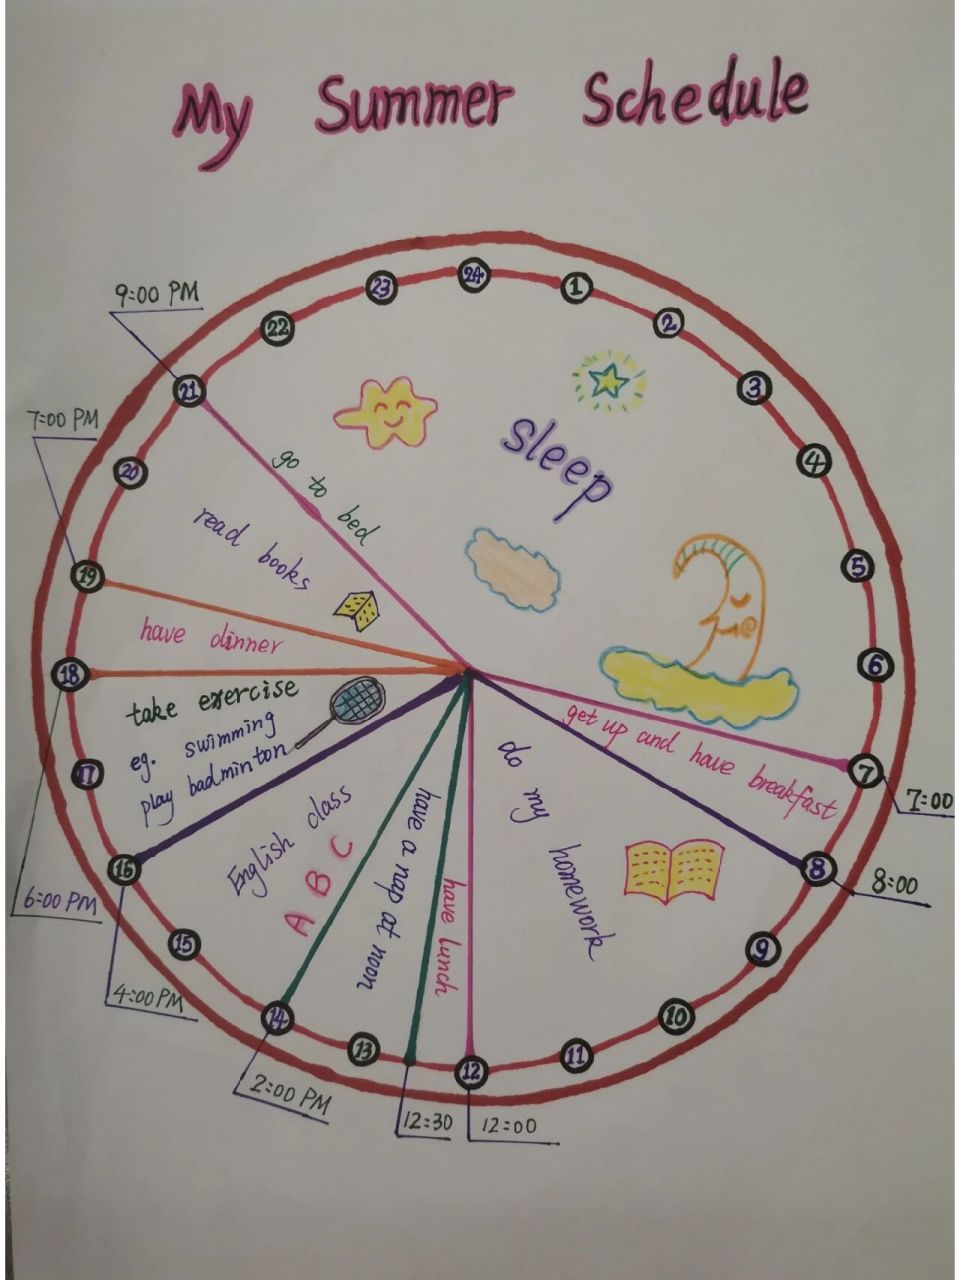 My Summer Schedule
24
1
2
3
4
5
6
7
8
9
10
11
12
13
14
15
16
17
18
19
20
21
22
23
9:00 PM
7:00 PM
6:00 PM
4:00 PM
2:00 PM
12:30
12:00
8:00
7:00
sleep
go to bed
read books
have dinner
take exercise
eg. swimming
play badminton
English class
A B C
have a nap at noon
have lunch
do my homework
get up and have breakfast